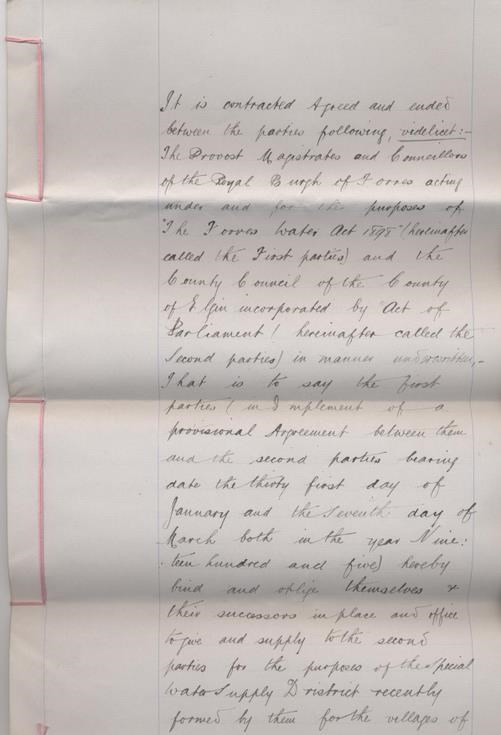 It is contracted Agreed and ended
between the parties following, videlicet:-
The Provost Magistrates and Councillors
of the Royal Burgh of Forres acting
under and for the purposes of
"The Forres Water Act 1898" (hereinafter
called the First parties) and the
County Council of the County
of Elgin incorporated by Act of
Parliament (hereinafter called the
Second parties) in manner underwritten,-
That is to say the first
parties (in Implement of a
provisional Agreement between them
and the second parties bearing
date the thirty first day of
January and the seventh day of
March both in the year Nine:
:teen hundred and five) hereby
bind and oblige themselves &
their successors in place and office
to give and supply to the second
parties for the purposes of the Special
Water Supply District recently
formed by them for the villages of